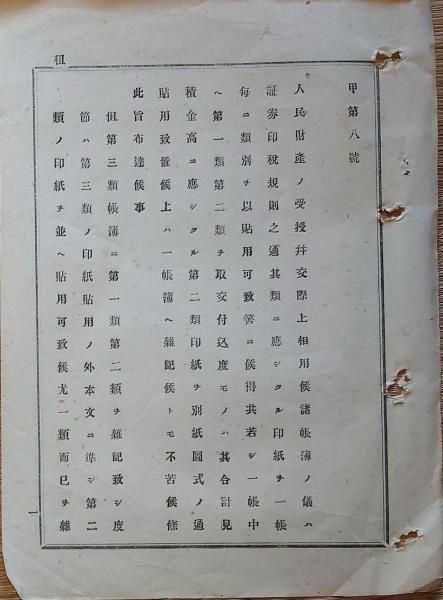 租
甲第八號
人民財產ノ受授幷交際上相用候諸帳簿ノ儀ハ
証券印税規則之通其類ニ應シタル印紙ヲ一帳
每ニ類別ヲ以貼用可致筈ニ候得共若シ一帳中
ヘ第一類第二類ヲ取交付込度モノハ其合計見
積金高ニ應シタル第二類印紙ヲ別紙圖式ノ通
貼用致置候上ハ一帳簿ヘ雜記候トモ不苦候條
此旨布達候事
但第三類帳簿ニ第一類第二類ヲ雜記致シ度
節ハ第三類ノ印紙貼用ノ外本文ニ準シ第二
類ノ印紙ヲ並ヘ貼用可致候尤一類而已ヲ雜
一